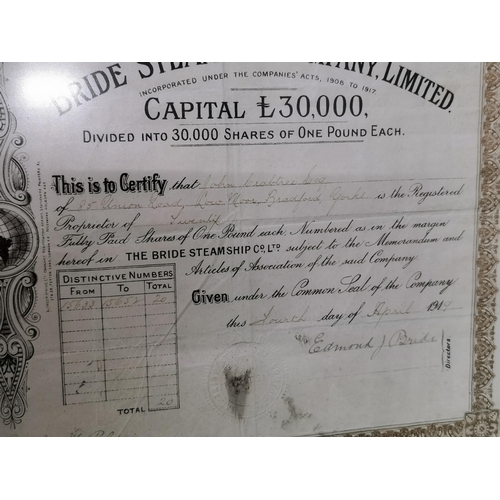 BRIDE STEAMSHIP COMPANY, LIMITED.
INCORPORATED UNDER THE COMPANIES' ACTS, 1908 TO 1917.
CAPITAL £30,000,
DIVIDED INTO 30,000 SHARES OF ONE POUND EACH.
This is to Certify that John Crabtree Esq
of 85 Road, Moor, Bradford, Yorks is the Registered
Proprietor of Twenty
Fully Paid Shares of One Pound each Numbered as in the margin
hereof in THE BRIDE STEAMSHIP CO, LTD subject to the Memorandum and
Articles of Association of the said Company
DISTINCTIVE NUMBERS
FROM TO TOTAL
20
TOTAL 20
Given under the Common Seal of the Company
this Fourth day of April 1919
Edmond J Bride
Directors.